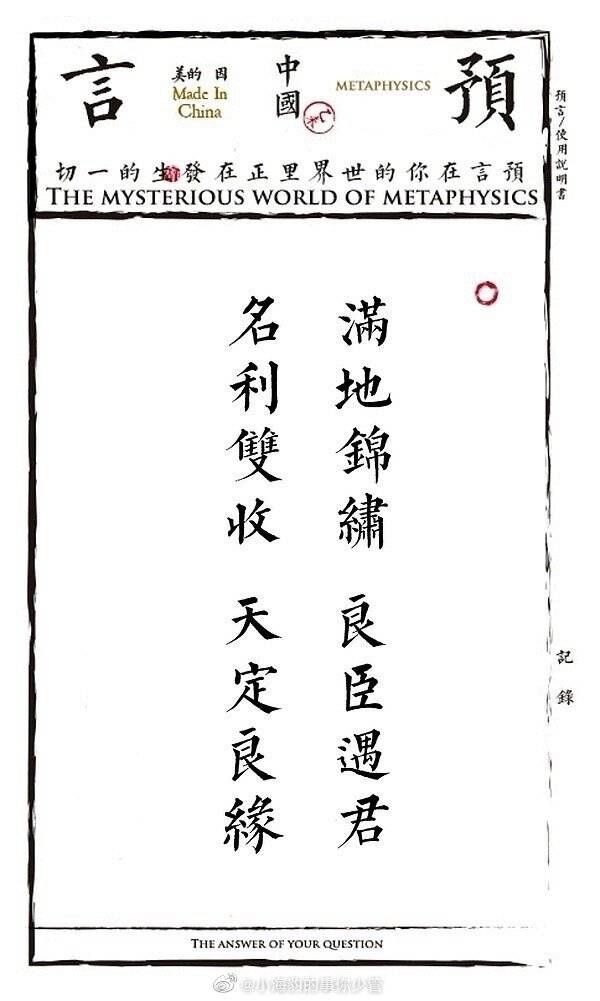 預言
METAPHYSICS
中國
因 的美
Made In
China
預言在你的世界里正在發生的一切
THE MYSTERIOUS WORLD OF METAPHYSICS
預言/使用説明書
滿地錦繡 良臣遇君
名利雙收 天定良緣
記錄
THE ANSWER OF YOUR QUESTION
@小海豹的事你少管